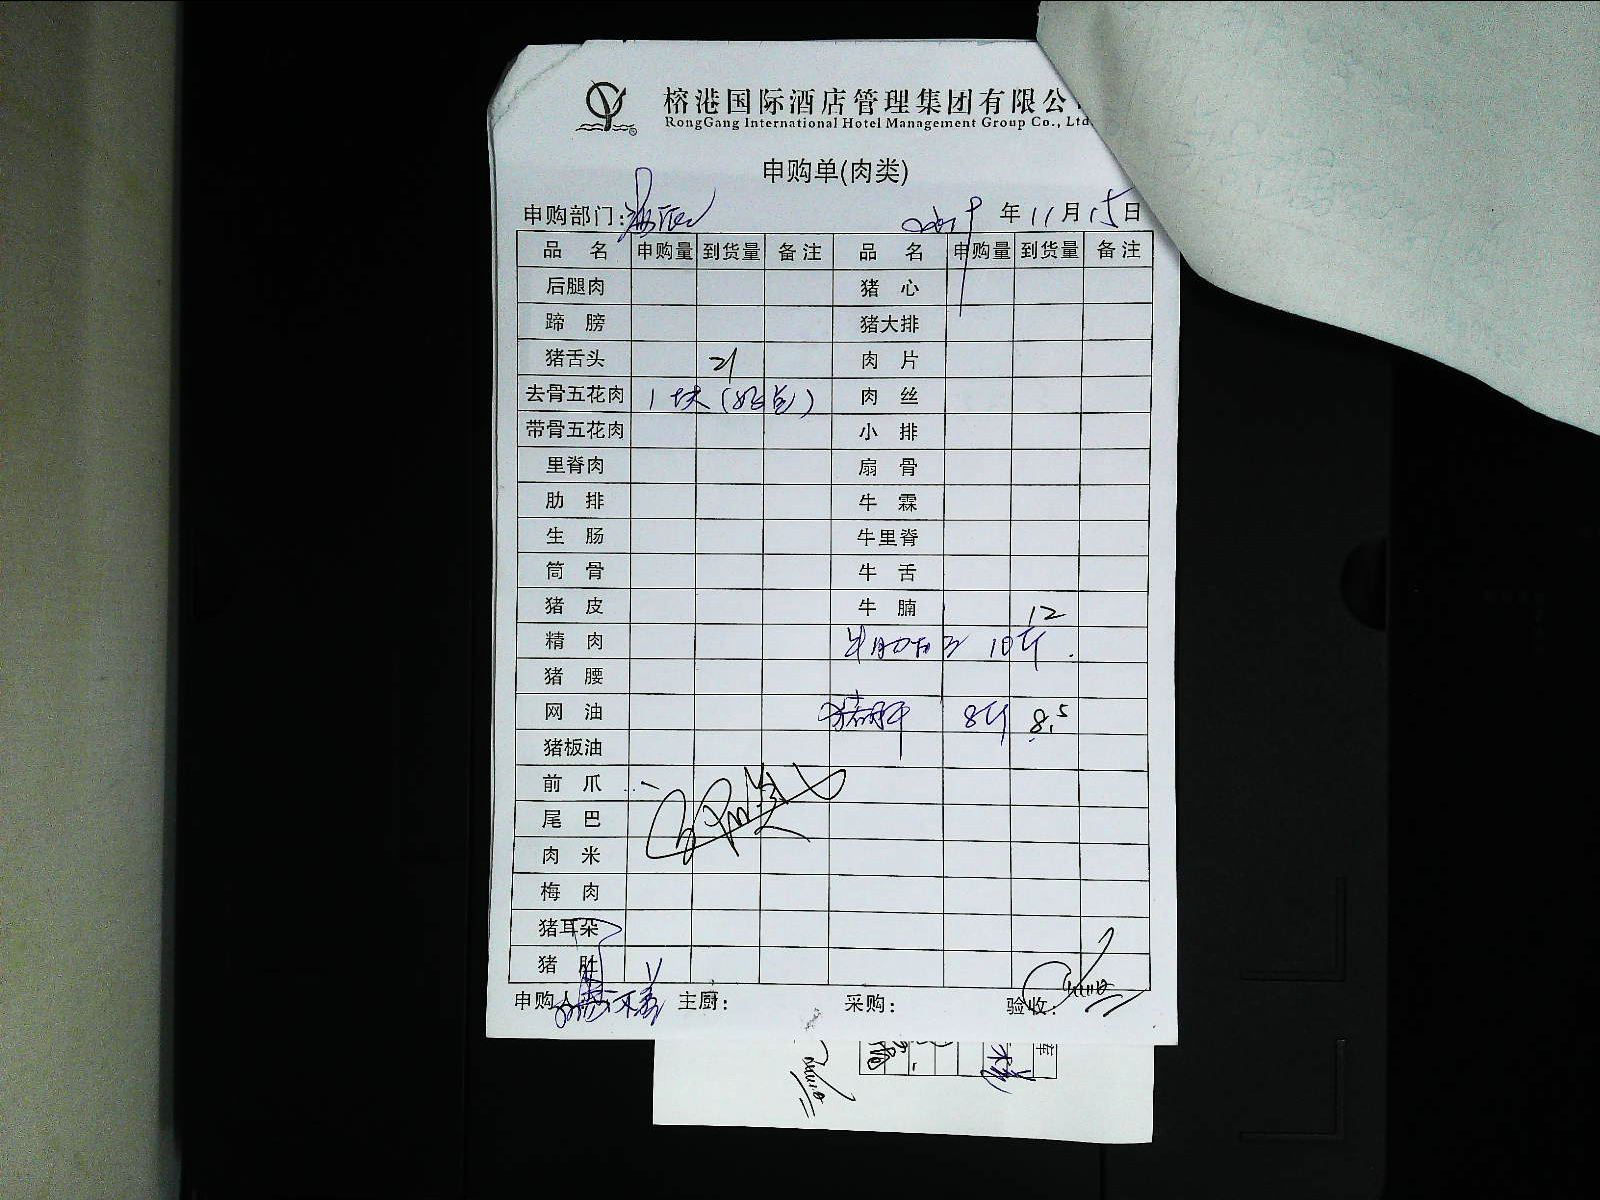 榕港国际酒店管理集团有限公
RongGang International Hotel Management Group Co., Ltd
申购单(肉类)
申购部门: 年 11 月 15 日
品 名 申购量 到货量 备注 品 名 申购量 到货量 备注
后腿肉 猪 心
蹄 膀 猪大排
猪舌头 21 肉 片
去骨五花肉 1块 肉 丝
带骨五花肉 小 排
里脊肉 扇 骨
肋 排 牛 霖
生 肠 牛里脊
筒 骨 牛 舌
猪 皮 牛 腩 12
精 肉 10斤
猪 腰
网 油 猪肝 8斤 8.5
猪板油
前 爪
尾 巴
肉 米
梅 肉
猪耳朵
猪 肚
申购人 主厨: 采购: 验收: